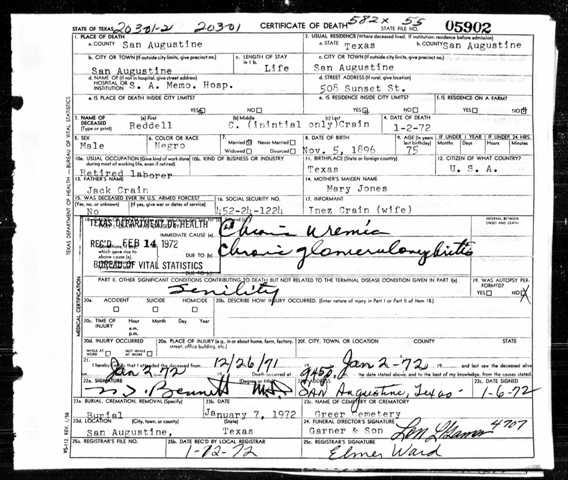 STATE OF TEXAS 20301-2 20301 CERTIFICATE OF DEATH 582x 55 STATE FILE NO. 05902
1. PLACE OF DEATH 2. USUAL RESIDENCE (Where deceased lived. If institution: residence before admission)
a. COUNTY San Augustine a. STATE Texas b. COUNTY San Augustine
b. CITY OR TOWN (If outside city limits, give precinct no.) c. LENGTH OF STAY in 1 b. c. CITY OR TOWN (If outside city limits, give precinct no.)
San Augustine Life San Augustine
d. NAME OF (If not in hospital, give street address) HOSPITAL OR INSTITUTION S. A. Memo. Hosp. d. STREET ADDRESS (If rural, give location) 505 Sunset St.
e. IS PLACE OF DEATH INSIDE CITY LIMITS? e. IS RESIDENCE INSIDE CITY LIMITS? f. IS RESIDENCE ON A FARM?
YES NO YES NO YES NO
3. NAME OF DECEASED (Type or print) (a) First (b) Middle (c) Last 4. DATE OF DEATH
Reddell C. (inintial only) Crain 1-2-72
5. SEX 6. COLOR OR RACE 7. Married Never Married Widowed Divorced 8. DATE OF BIRTH 9. AGE (In years last birthday) IF UNDER 1 YEAR Months Days IF UNDER 24 HRS. Hours Min.
Male Negro Nov. 5, 1896 75
10a. USUAL OCCUPATION (Give kind of work done during most of working life, even if retired) 10b. KIND OF BUSINESS OR INDUSTRY 11. BIRTHPLACE (State or foreign country) 12. CITIZEN OF WHAT COUNTRY?
Retired laborer Texas U. S. A.
13. FATHER'S NAME 14. MOTHER'S MAIDEN NAME
Jack Crain Mary Jones
15. WAS DECEASED EVER IN U.S. ARMED FORCES? (Yes, no, or unknown) (If yes, give war or dates of service) 16. SOCIAL SECURITY NO. 17. INFORMANT
No 452-24-1224 Inez Crain (wife)
TEXAS DEPARTMENT OF HEALTH
REC'D FEB 14 1972
BUREAU OF VITAL STATISTICS
IMMEDIATE CAUSE (a) Chronic Uremia
DUE TO (b) Chronic glomerulonephritis
DUE TO (c)
INTERVAL BETWEEN ONSET AND DEATH
PART II. OTHER SIGNIFICANT CONDITIONS CONTRIBUTING TO DEATH BUT NOT RELATED TO THE TERMINAL DISEASE CONDITION GIVEN IN PART I(a) 19. WAS AUTOPSY PERFORMED?
Senility YES NO
20a. ACCIDENT SUICIDE HOMICIDE 20b. DESCRIBE HOW INJURY OCCURRED. (Enter nature of injury in Part I or Part II of Item 18.)
20c. TIME OF INJURY Hour Month Day Year a.m. p.m.
20d. INJURY OCCURRED WHILE AT WORK NOT WHILE AT WORK 20e. PLACE OF INJURY (e.g., in or about home, farm, factory, street, office building, etc.) 20f. CITY, TOWN, OR LOCATION COUNTY STATE
21. 12/26/71 Jan 2-'72
Jan 2-72 Death occurred at 945 p. m. on the date stated above, and to the best of my knowledge, from the causes stated.
22a. SIGNATURE (Degree or title) 22b. ADDRESS 22c. DATE SIGNED
Bennett M.D. San Augustine, Texas 1-6-72
23a. BURIAL, CREMATION, REMOVAL (Specify) 23b. DATE 23c. NAME OF CEMETERY OR CREMATORY
Burial January 7, 1972 Greer Cemetery
23d. LOCATION (City, town, or county) (State) 24. FUNERAL DIRECTOR'S SIGNATURE
San Augustine, Texas Garner & Son 4707
25a. REGISTRAR'S FILE NO. 25b. DATE REC'D BY LOCAL REGISTRAR 25c. REGISTRAR'S SIGNATURE
1-12-72 Elmer Ward
TEXAS DEPARTMENT OF HEALTH — BUREAU OF VITAL STATISTICS
MEDICAL CERTIFICATION
VS-112, REV. 1/58